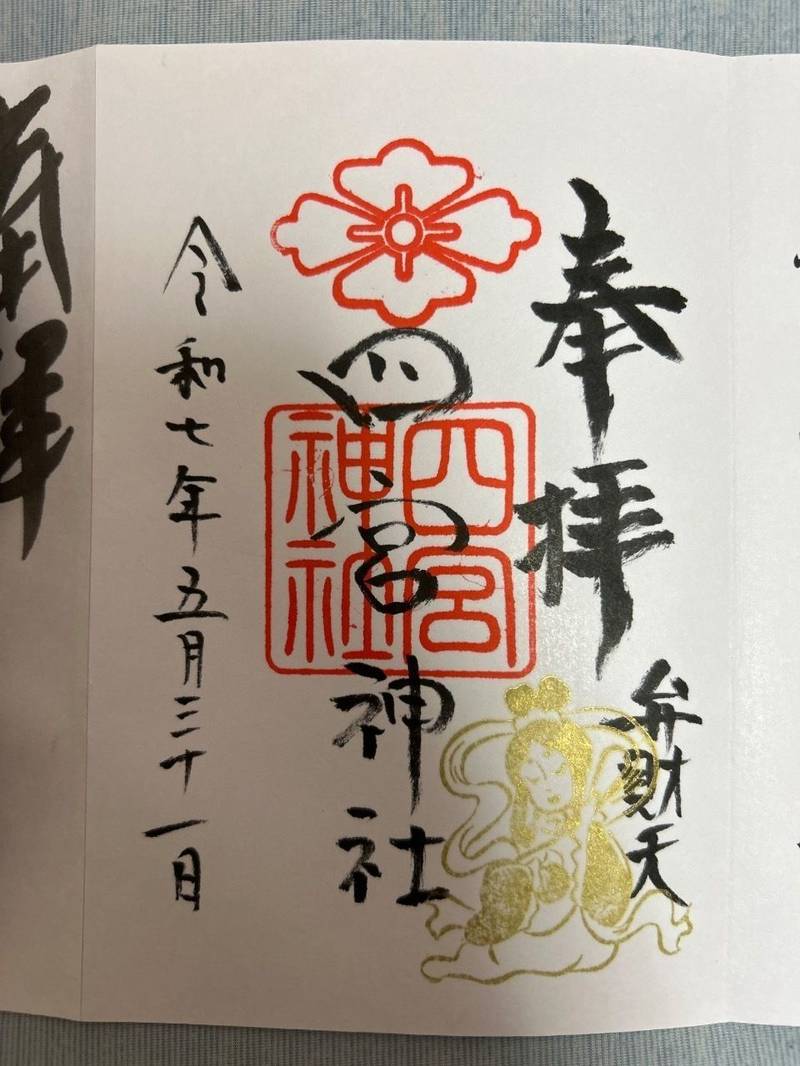 奉拝
弁財天
四宮神社
四宮
神社
令和七年五月三十一日
拝